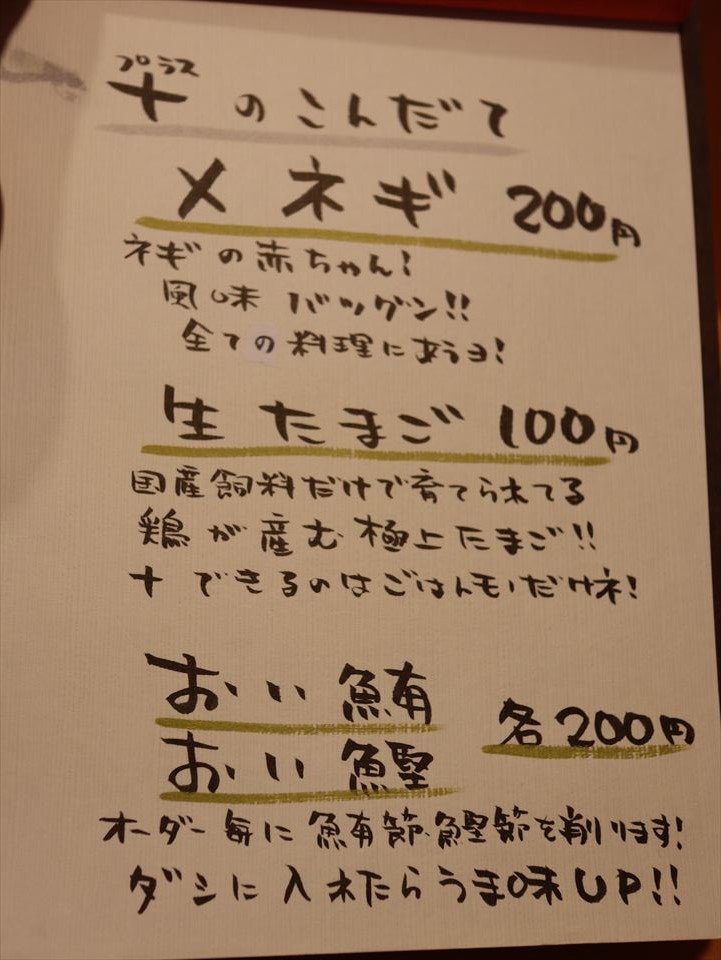 プラス
＋のこんだて
メネギ 200円
ネギの赤ちゃん!
風味バツグン!!
全ての料理にあうヨ!
生たまご 100円
国産飼料だけで育てられてる
鶏が産む極上たまご!!
＋できるのはごはんモノだけネ!
おい鮪
おい鰹
各200円
オーダー毎に鮪節・鰹節を削ります!
ダシに入れたらうま味UP!!